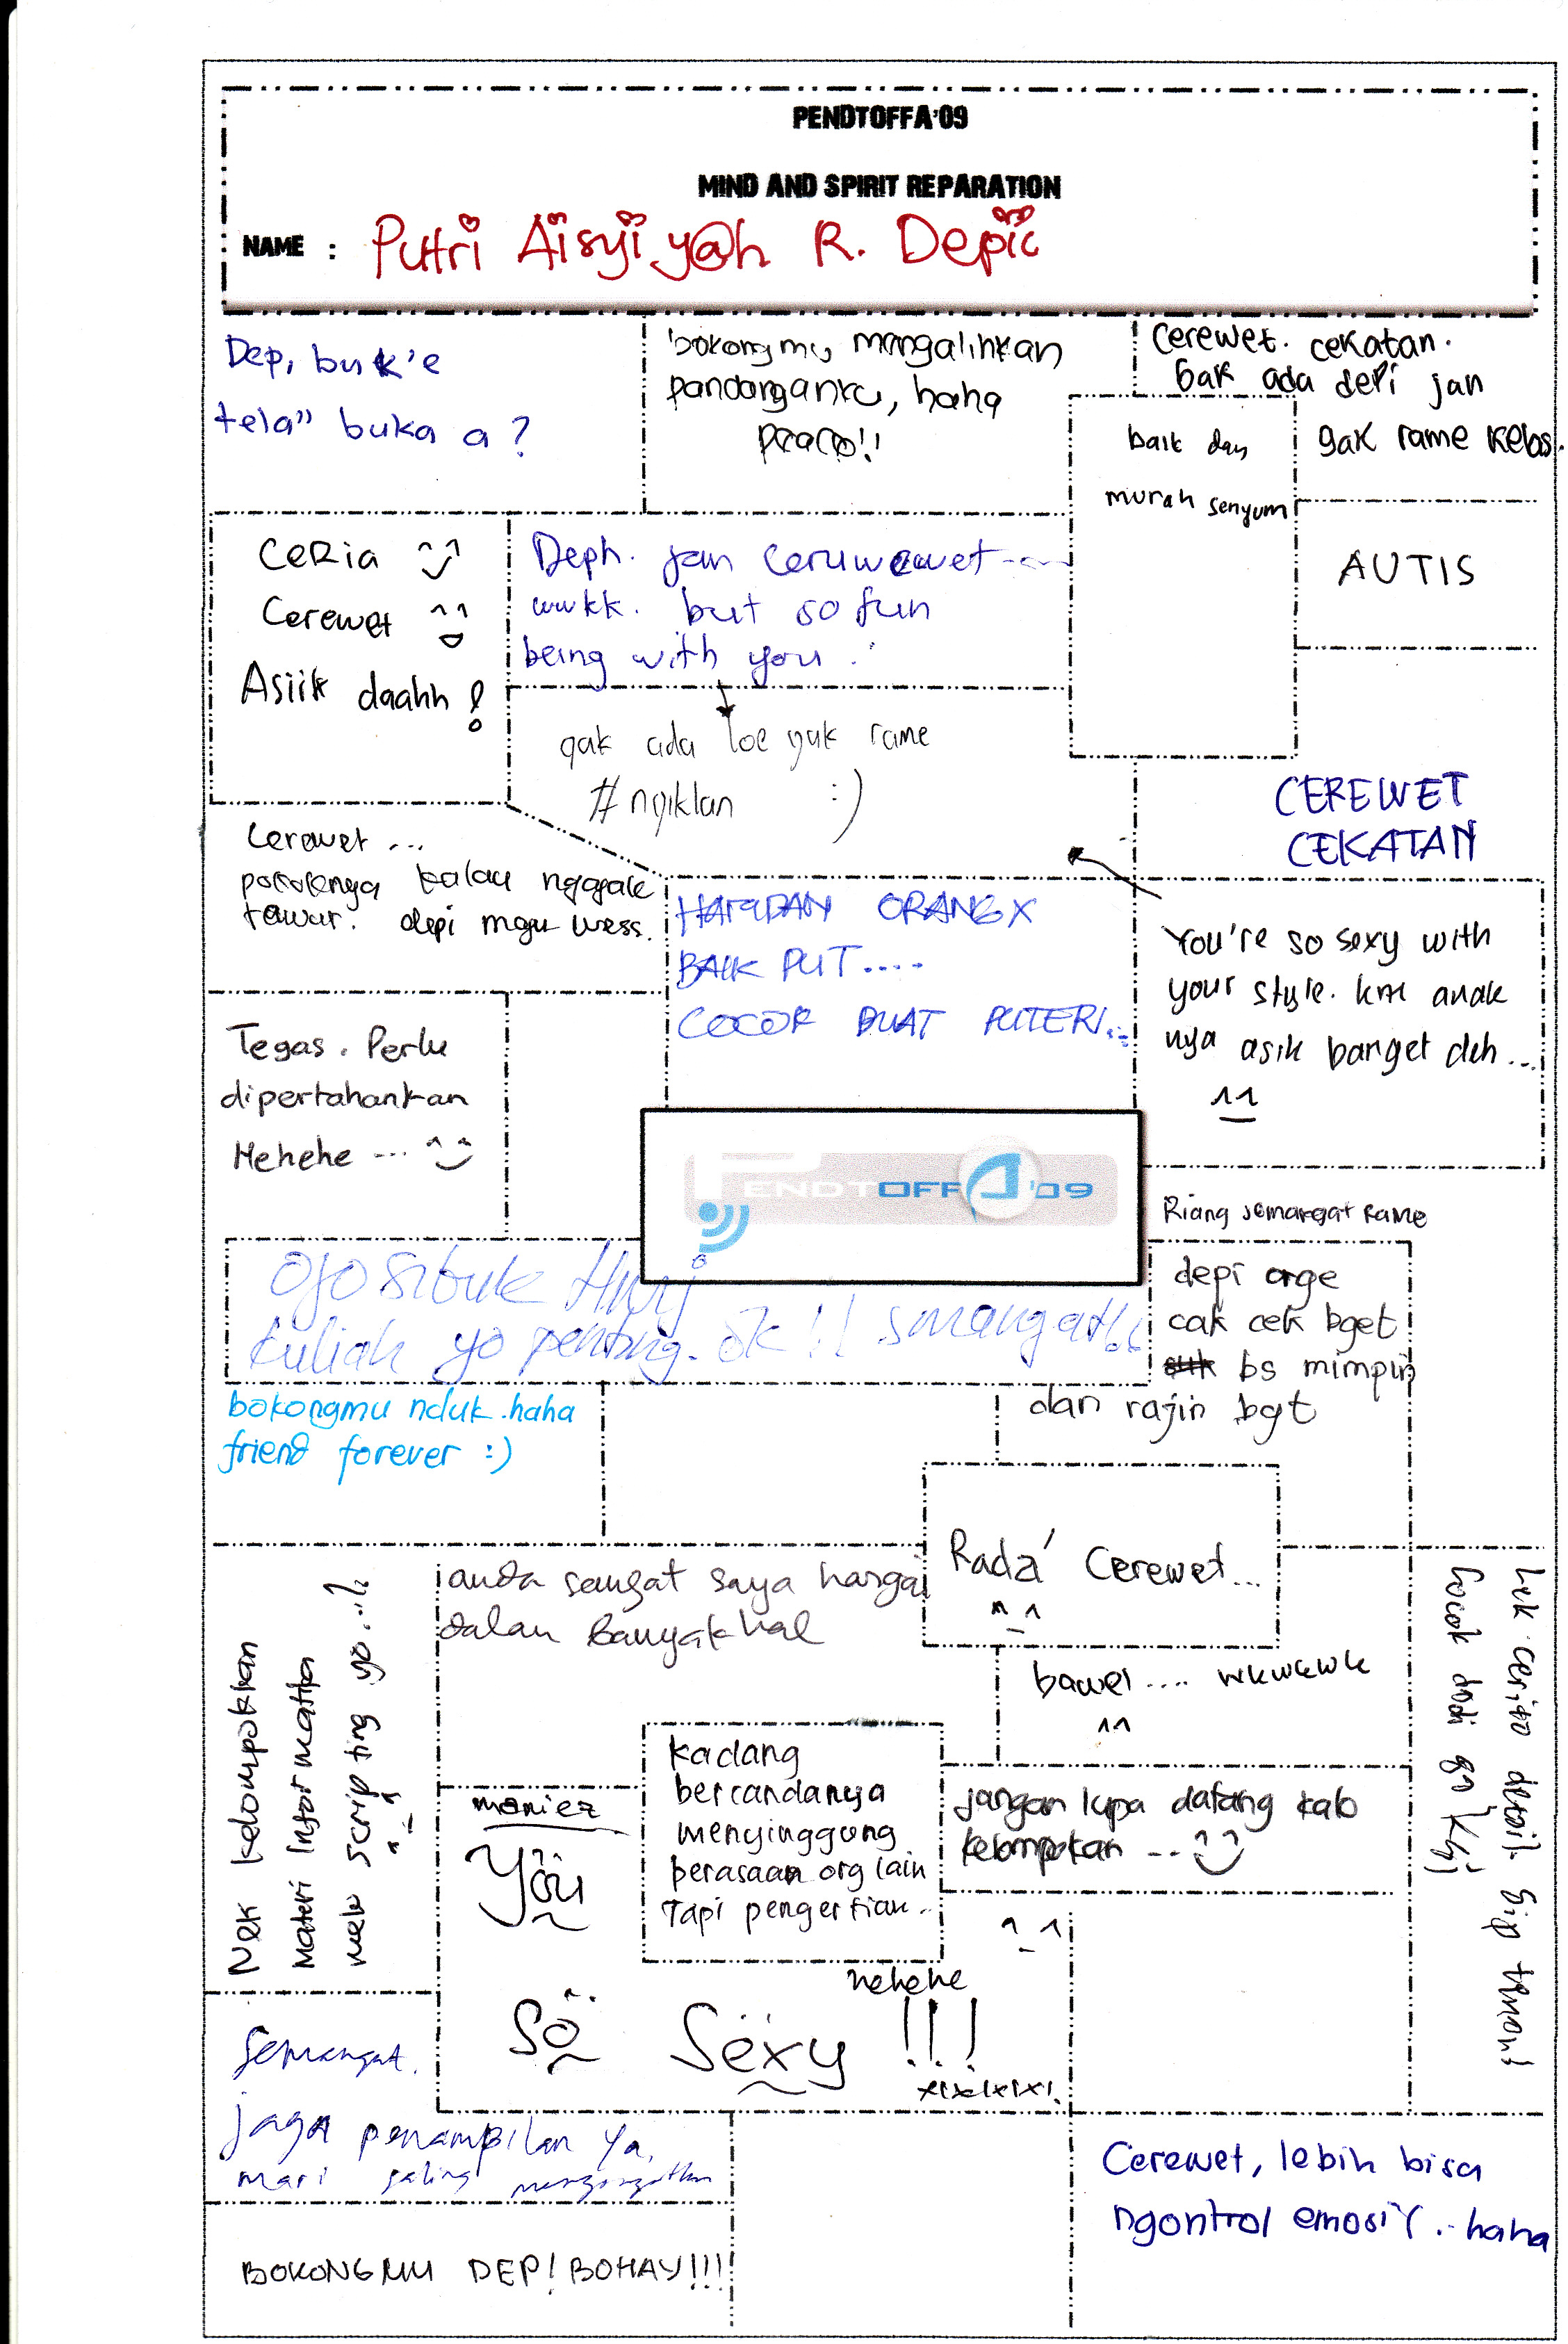 PENDTOFFA'09
MIND AND SPIRIT REPARATION
NAME : Putri Aisyiy@h R. Depic
Dep, buk'e
tela" buka a ?
bokongmu mengalihkan
pandanganku, haha
Cerewet. cekatan.
gak ada depi jan
gak rame kelas.
baik dan
murah senyum
AUTIS
CeRia
Cerewet
Asiik daahh !
Deph. jan ceruwewet
wwkk. but so fun
being with you.
gak ada loe gak rame
#ngiklan :)
CEREWET
CEKATAN
Cerewet ...
pokoknya kalau nggak
tawur. depi
HARAPAN ORANGX
BAIK PUT....
COCOK BUAT PUTERI..
You're so sexy with
your style. km anak
nya asik banget deh...
^^
Tegas. Perlu
dipertahankan
Hehehe ...
PENDTOFFA '09
Riang semangat rame
ojo sibuk
kuliah yo penting. ok!! smangat!!
depi orge
cak cek bget
bs mimpin
dan rajin bgt
bokongmu nduk.haha
friend forever :)
Rada' Cerewet...
^_^
anda sangat saya hargai
dalam Banyak hal
bawel .... wkwkwk
^^
Nek kelompokkan
materi Informatika
melu scripting yo..!
^_^
Kadang
bercandanya
menyinggung
perasaan org lain
Tapi pengertian..
jangan lupa datang kalo
kelompokan ...
^_^
Lek cerito detail. Sip teman!
Cocok dadi
maniez
You
So Sexy !!!
hehehe
xixixixixi.
Semangat.
jaga penampilan ya,
mari saling mengingatkan
Cerewet, lebih bisa
ngontrol emosiY.. haha
BOKONGMU DEP! BOHAY!!!